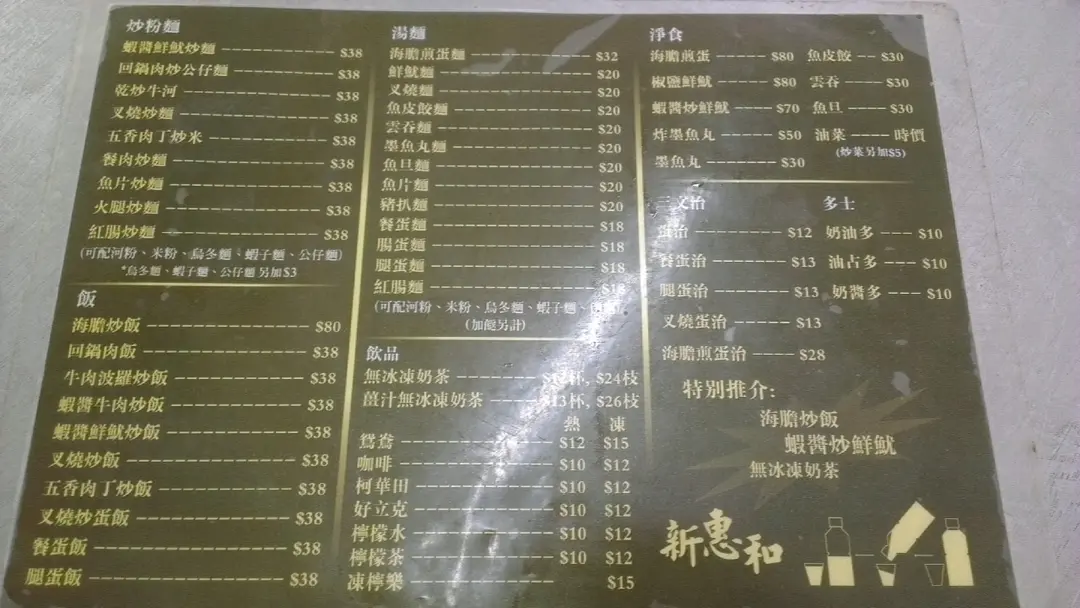 炒粉麵
蝦醬鮮魷炒麵 $38
回鍋肉炒公仔麵 $38
乾炒牛河 $38
叉燒炒麵 $38
五香肉丁炒米 $38
餐肉炒麵 $38
魚片炒麵 $38
火腿炒麵 $38
紅腸炒麵 $38
(可配河粉、米粉、烏冬麵、蝦子麵、公仔麵)
*烏冬麵、蝦子麵、公仔麵 另加$3
飯
海膽炒飯 $80
回鍋肉飯 $38
牛肉波羅炒飯 $38
蝦醬牛肉炒飯 $38
蝦醬鮮魷炒飯 $38
叉燒炒飯 $38
五香肉丁炒飯 $38
叉燒炒蛋飯 $38
餐蛋飯 $38
腿蛋飯 $38
湯麵
海膽煎蛋麵 $32
鮮魷麵 $20
叉燒麵 $20
魚皮餃麵 $20
雲吞麵 $20
墨魚丸麵 $20
魚旦麵 $20
魚片麵 $20
豬扒麵 $20
餐蛋麵 $18
腸蛋麵 $18
腿蛋麵 $18
紅腸麵 $18
(可配河粉、米粉、烏冬麵、蝦子麵、
(加餸另計)
飲品
無冰凍奶茶 $12杯, $24枝
薑汁無冰凍奶茶 $13杯, $26枝
熱 凍
鴛鴦 $12 $15
咖啡 $10 $12
柯華田 $10 $12
好立克 $10 $12
檸檬水 $10 $12
檸檬茶 $10 $12
凍檸樂 $15
淨食
海膽煎蛋 $80 魚皮餃 $30
椒鹽鮮魷 $80 雲吞 $30
蝦醬炒鮮魷 $70 魚旦 $30
炸墨魚丸 $50 油菜 時價
(炒菜另加$5)
墨魚丸 $30
三文治 多士
蛋治 $12 奶油多 $10
餐蛋治 $13 油占多 $10
腿蛋治 $13 奶醬多 $10
叉燒蛋治 $13
海膽煎蛋治 $28
特別推介:
海膽炒飯
蝦醬炒鮮魷
無冰凍奶茶
新惠和